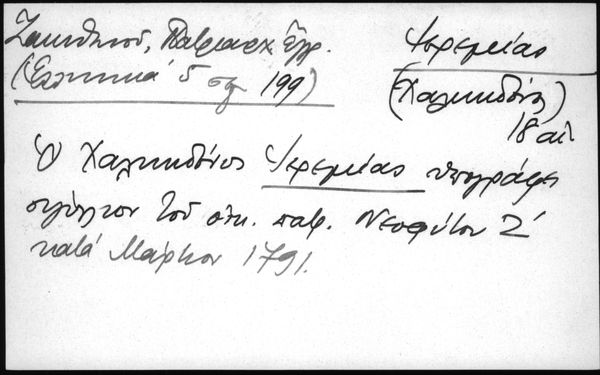 Ζακυθηνού, Πατριαρχ. Έγγρ.
(Ἑλληνικά 5 σελ 199)
Ἱερεμίας
(Χαλκηδόνος)
18 αἰ.
Ὁ Χαλκηδόνος Ἱερεμίας ὑπογράφει
σιγίλλιον τοῦ οἰκ. πατρ. Νεοφύτου Ζ΄
κατά Μάρτιον 1791.